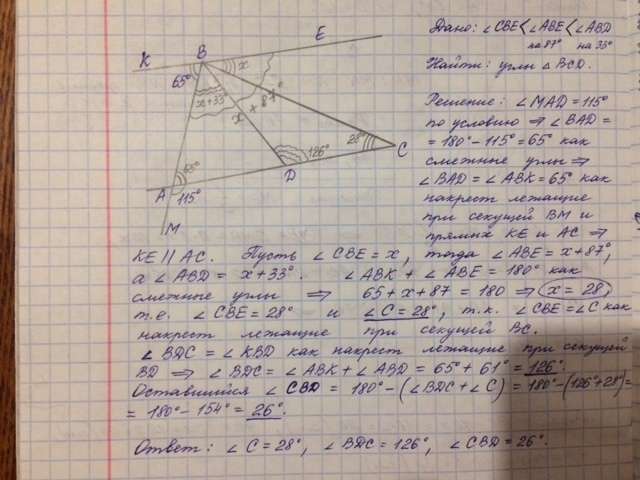 E
K
B
65°
x
x+33°
x + 87°
28°
C
126°
D
65°
A
115°
M
Дано: ∠CBE < ∠ABE < ∠ABD
на 87° на 33°
Найти: углы △BCD.
Решение: ∠MAD = 115°
по условию ⇒ ∠BAD =
= 180° - 115° = 65° как
смежные углы ⇒
∠BAD = ∠ABK = 65° как
накрест лежащие
при секущей BM и
прямых KE и AC ⇒
KE || AC. Пусть ∠CBE = x, тогда ∠ABE = x + 87°,
а ∠ABD = x + 33°. ∠ABK + ∠ABE = 180° как
смежные углы ⇒ 65 + x + 87 = 180 ⇒ x = 28,
т.е. ∠CBE = 28° и ∠C = 28°, т.к. ∠CBE = ∠C как
накрест лежащие при секущей BC.
∠BDC = ∠KBD как накрест лежащие при секущей
BD ⇒ ∠BDC = ∠ABK + ∠ABD = 65° + 61° = 126°.
Оставшийся ∠CBD = 180° - (∠BDC + ∠C) = 180° - (126° + 28°) =
= 180° - 154° = 26°.
Ответ: ∠C = 28°, ∠BDC = 126°, ∠CBD = 26°.